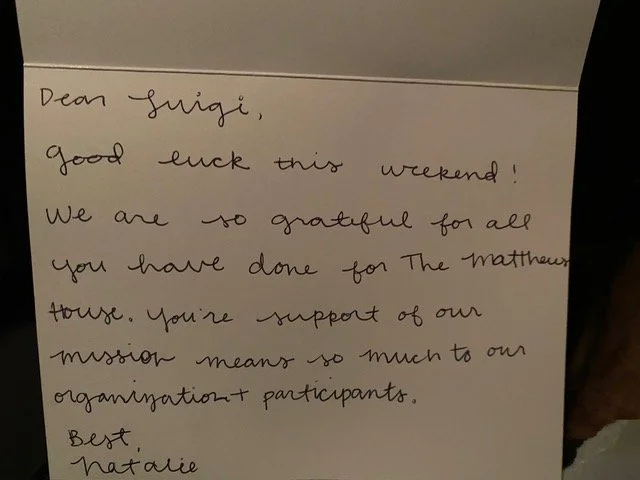 Dear Luigi,
Good luck this weekend!
We are so grateful for all
you have done for The Matthews
House. You're support of our
mission means so much to our
organization + participants.
Best,
Natalie